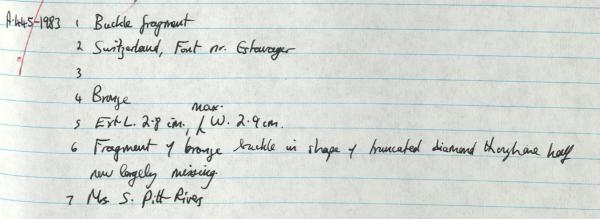 A.445-1983 1 Buckle fragment
2 Switzerland, Font nr. Estavayer
3
4 Bronze
5 Ext L. 2.8 cm, max. W. 2.9 cm.
6 Fragment of bronze buckle in shape of truncated diamond though one half
now largely missing.
7 Mrs. S. Pitt-Rivers